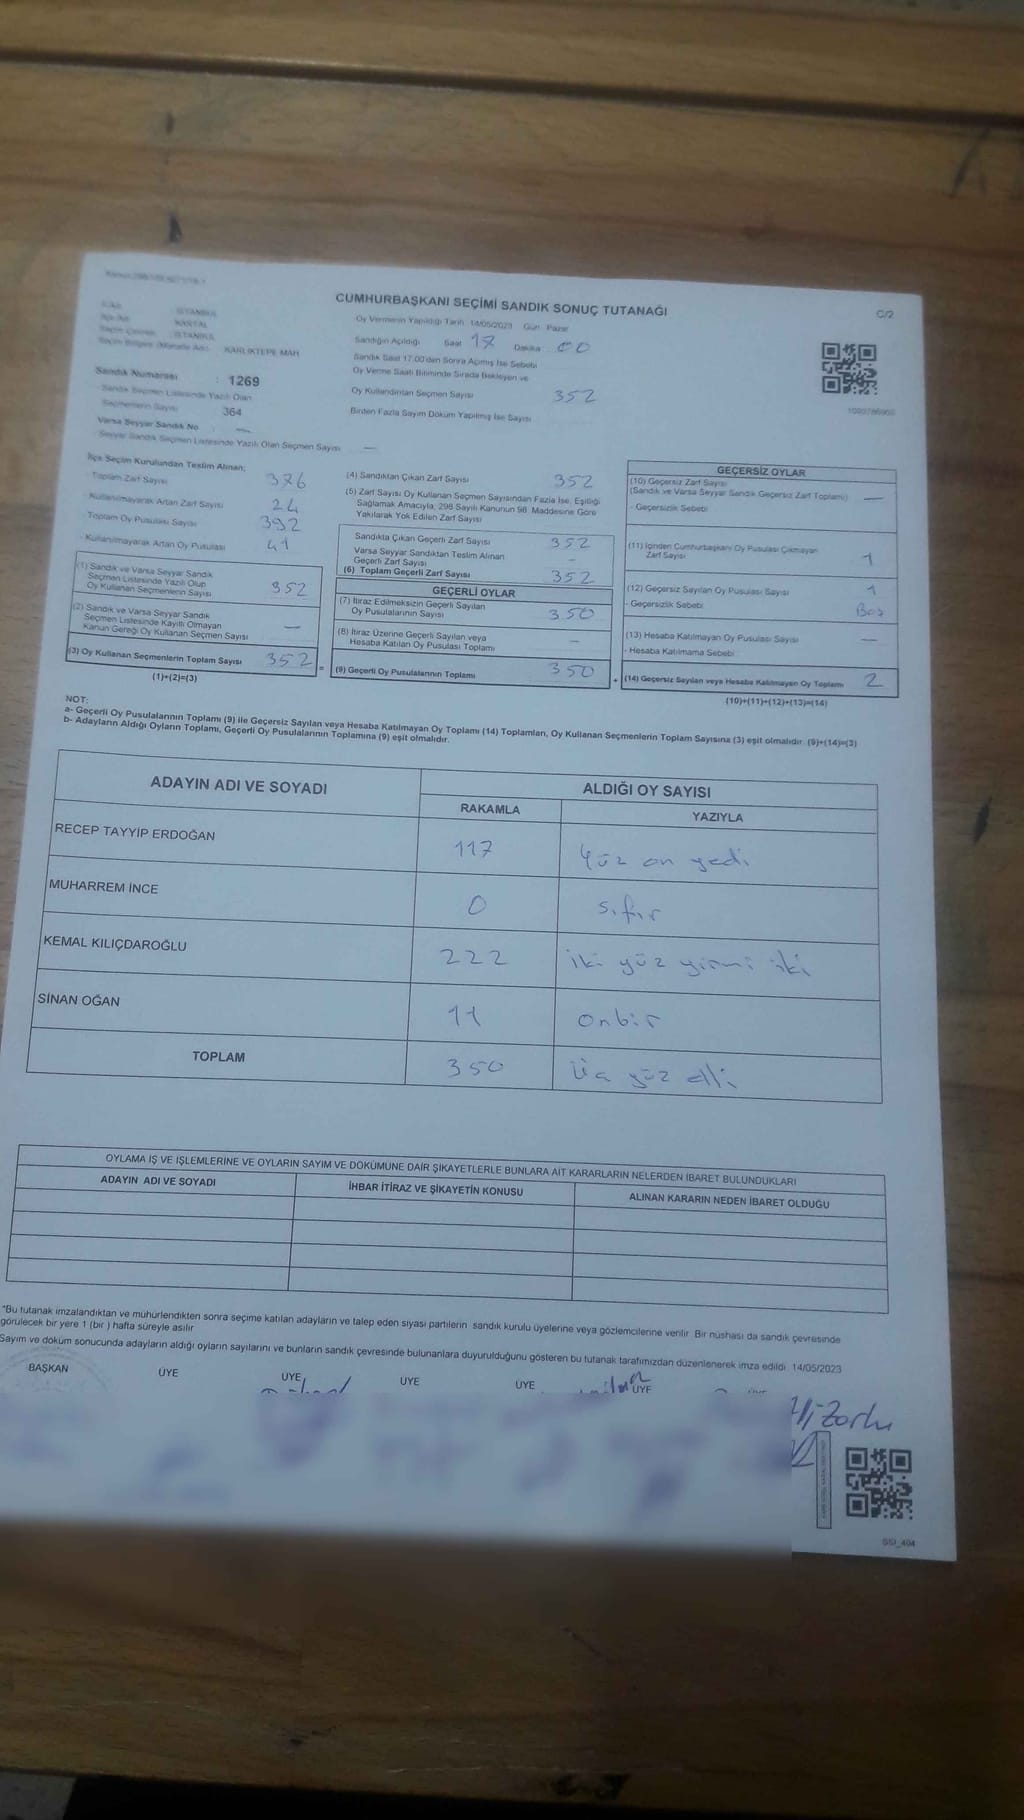 CUMHURBAŞKANI SEÇİMİ SANDIK SONUÇ TUTANAĞI
C/2
İSTANBUL
KARTAL
İSTANBUL
KARLIKTEPE MAH
Sandık Numarası : 1269
Sandık Seçmen Listesinde Yazılı Olan
Seçmenlerin Sayısı 364
Varsa Seyyar Sandık No : —
Seyyar Sandık Seçmen Listesinde Yazılı Olan Seçmen Sayısı —
Oy Vermenin Yapıldığı Tarih 14/05/2023 Gün Pazar
Sandığın Açıldığı Saat 17 Dakika 00
Sandık Saat 17:00'den Sonra Açılmış İse Sebebi
Oy Verme Saati Bitiminde Sırada Bekleyen ve
Oy Kullandırılan Seçmen Sayısı 352
Birden Fazla Sayım Döküm Yapılmış İse Sayısı
İlçe Seçim Kurulundan Teslim Alınan;
Toplam Zarf Sayısı 376
- Kullanılmayarak Artan Zarf Sayısı 24
Toplam Oy Pusulası Sayısı 392
- Kullanılmayarak Artan Oy Pusulası 41
(1) Sandık ve Varsa Seyyar Sandık
Seçmen Listesinde Yazılı Olup
Oy Kullanan Seçmenlerin Sayısı 352
(2) Sandık ve Varsa Seyyar Sandık
Seçmen Listesinde Kayıtlı Olmayan
Kanun Gereği Oy Kullanan Seçmen Sayısı —
(3) Oy Kullanan Seçmenlerin Toplam Sayısı 352 =
(1)+(2)=(3)
(4) Sandıktan Çıkan Zarf Sayısı 352
(5) Zarf Sayısı Oy Kullanan Seçmen Sayısından Fazla İse, Eşitliği
Sağlamak Amacıyla, 298 Sayılı Kanunun 98. Maddesine Göre
Yakılarak Yok Edilen Zarf Sayısı
Sandıkta Çıkan Geçerli Zarf Sayısı 352
Varsa Seyyar Sandıktan Teslim Alınan
Geçerli Zarf Sayısı -
(6) Toplam Geçerli Zarf Sayısı 352
GEÇERLİ OYLAR
(7) İtiraz Edilmeksizin Geçerli Sayılan
Oy Pusulalarının Sayısı 350
(8) İtiraz Üzerine Geçerli Sayılan veya
Hesaba Katılan Oy Pusulası Toplamı -
(9) Geçerli Oy Pusulalarının Toplamı 350 +
GEÇERSİZ OYLAR
(10) Geçersiz Zarf Sayısı
(Sandık ve Varsa Seyyar Sandık Geçersiz Zarf Toplamı) —
- Geçersizlik Sebebi
(11) İçinden Cumhurbaşkanı Oy Pusulası Çıkmayan
Zarf Sayısı 1
(12) Geçersiz Sayılan Oy Pusulası Sayısı 1
- Geçersizlik Sebebi Boş
(13) Hesaba Katılmayan Oy Pusulası Sayısı —
- Hesaba Katılmama Sebebi
(14) Geçersiz Sayılan veya Hesaba Katılmayan Oy Toplamı 2
(10)+(11)+(12)+(13)=(14)
NOT:
a- Geçerli Oy Pusulalarının Toplamı (9) ile Geçersiz Sayılan veya Hesaba Katılmayan Oy Toplamı (14) Toplamları, Oy Kullanan Seçmenlerin Toplam Sayısına (3) eşit olmalıdır. (9)+(14)=(3)
b- Adayların Aldığı Oyların Toplamı, Geçerli Oy Pusulalarının Toplamına (9) eşit olmalıdır.
ADAYIN ADI VE SOYADI ALDIĞI OY SAYISI
RAKAMLA YAZIYLA
RECEP TAYYİP ERDOĞAN 117 Yüz on yedi
MUHARREM İNCE 0 sıfır
KEMAL KILIÇDAROĞLU 222 iki yüz yirmi iki
SİNAN OĞAN 11 onbir
TOPLAM 350 Üç yüz elli
OYLAMA İŞ VE İŞLEMLERİNE VE OYLARIN SAYIM VE DÖKÜMÜNE DAİR ŞİKAYETLERLE BUNLARA AİT KARARLARIN NELERDEN İBARET BULUNDUKLARI
ADAYIN ADI VE SOYADI İHBAR İTİRAZ VE ŞİKAYETİN KONUSU ALINAN KARARIN NEDEN İBARET OLDUĞU
*Bu tutanak imzalandıktan ve mühürlendikten sonra seçime katılan adayların ve talep eden siyasi partilerin sandık kurulu üyelerine veya gözlemcilerine verilir. Bir nüshası da sandık çevresinde
görülecek bir yere 1 (bir ) hafta süreyle asılır
Sayım ve döküm sonucunda adayların aldığı oyların sayılarını ve bunların sandık çevresinde bulunanlara duyurulduğunu gösteren bu tutanak tarafımızdan düzenlenerek imza edildi. 14/05/2023
BAŞKAN ÜYE ÜYE ÜYE ÜYE ÜYE
SSI_404